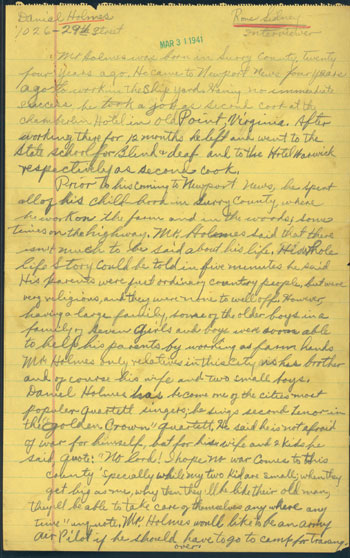 Daniel Holmes
1026-29th Street
Rose Sidney
Interviewer
MAR 31 1941
Mr Holmes was born in Surry County, twenty
four years ago. He came to Newport News four years
ago to work in the Ship Yard. Having no immediate
success he took a job as second cook at the
Chamberlin Hotel in old Point, Virginia. After
working there for 12 months he left and went to the
State School for Blind & deaf and to the Hotel Warwick
respectively as second cook.
Prior to his coming to Newport News, he spent
all of his child-hood in Surry County, where
he work on the farm and in the woods, some
times on the highway. Mr. Holmes said that there
isn't much to be said about his life. His whole
life story could be told in five minutes he said
His parents were just ordinary country people, but were
very religious, and they were none to well off. However,
having a large family, some of the older boys in a
family of seven girls and boys were soon able
to help his parents by working as farm hands
Mr Holmes only relatives in this city is his brother
and of course his wife and two small boys.
Daniel Holmes has become one of the cities most
popular Quartett singers; he sings second tenor in
the "Golden Crown" Quartett. He said he is not afraid
of war for himself, but for his wife and 2 kids he
said quote: "No Lord! I hope no war comes to this
country 'specially while my two kid are small; when they
get big as me, why then they'll be like their old man,
they'll be able to take care of themselves any where any
time" unquote. Mr. Holmes would like to be an army
air Pilot if he should have to go to camp for training.
over